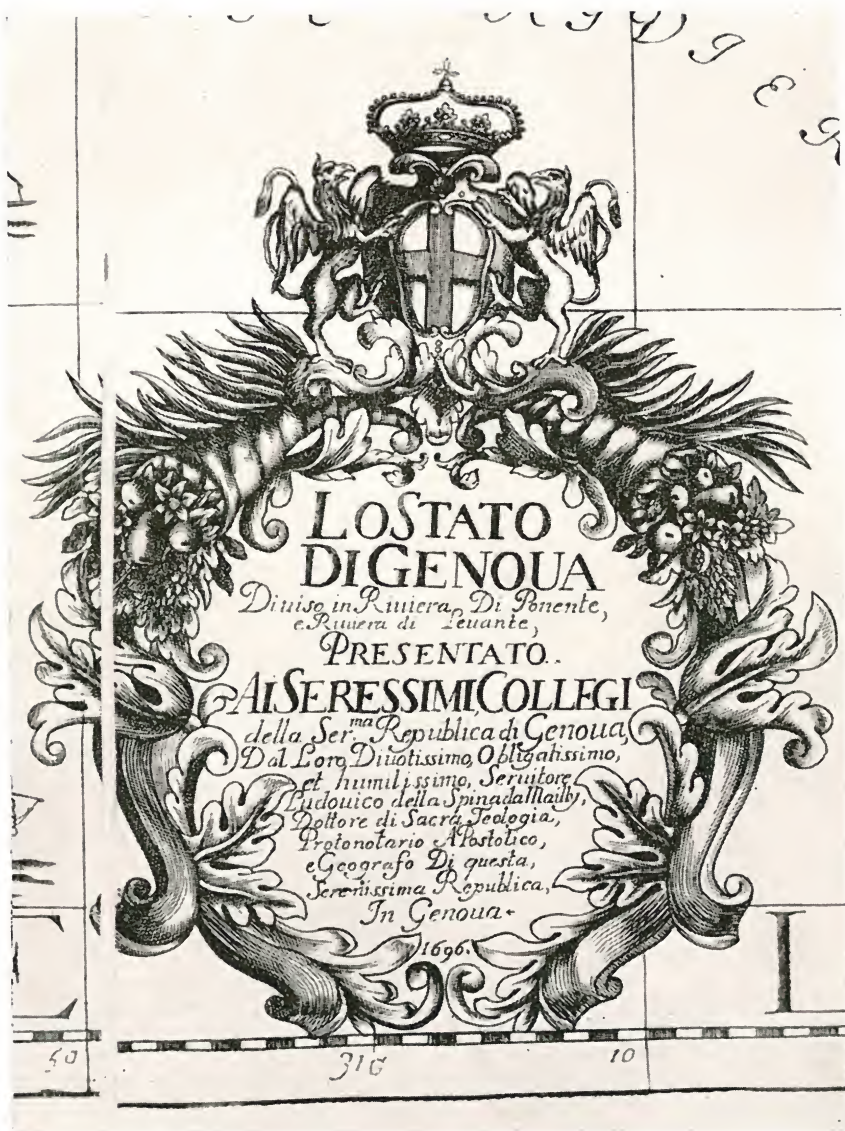 LO STATO
DI GENOUA
Diuiso in Riuiera Di Ponente,
e Riuiera di Leuante,
PRESENTATO.
AI SERESSIMI COLLEGI
della Ser.ma Republica di Genoua,
Dal Loro Diuotissimo, Obligatissimo,
et humilissimo, Seruitore
Ludouico della Spina da Mailly,
Dottore di Sacra Teologia,
Protonotario APostolico,
e Geografo Di questa,
Serenissima Republica,
In Genoua.
1696.
E I
50 31G 10